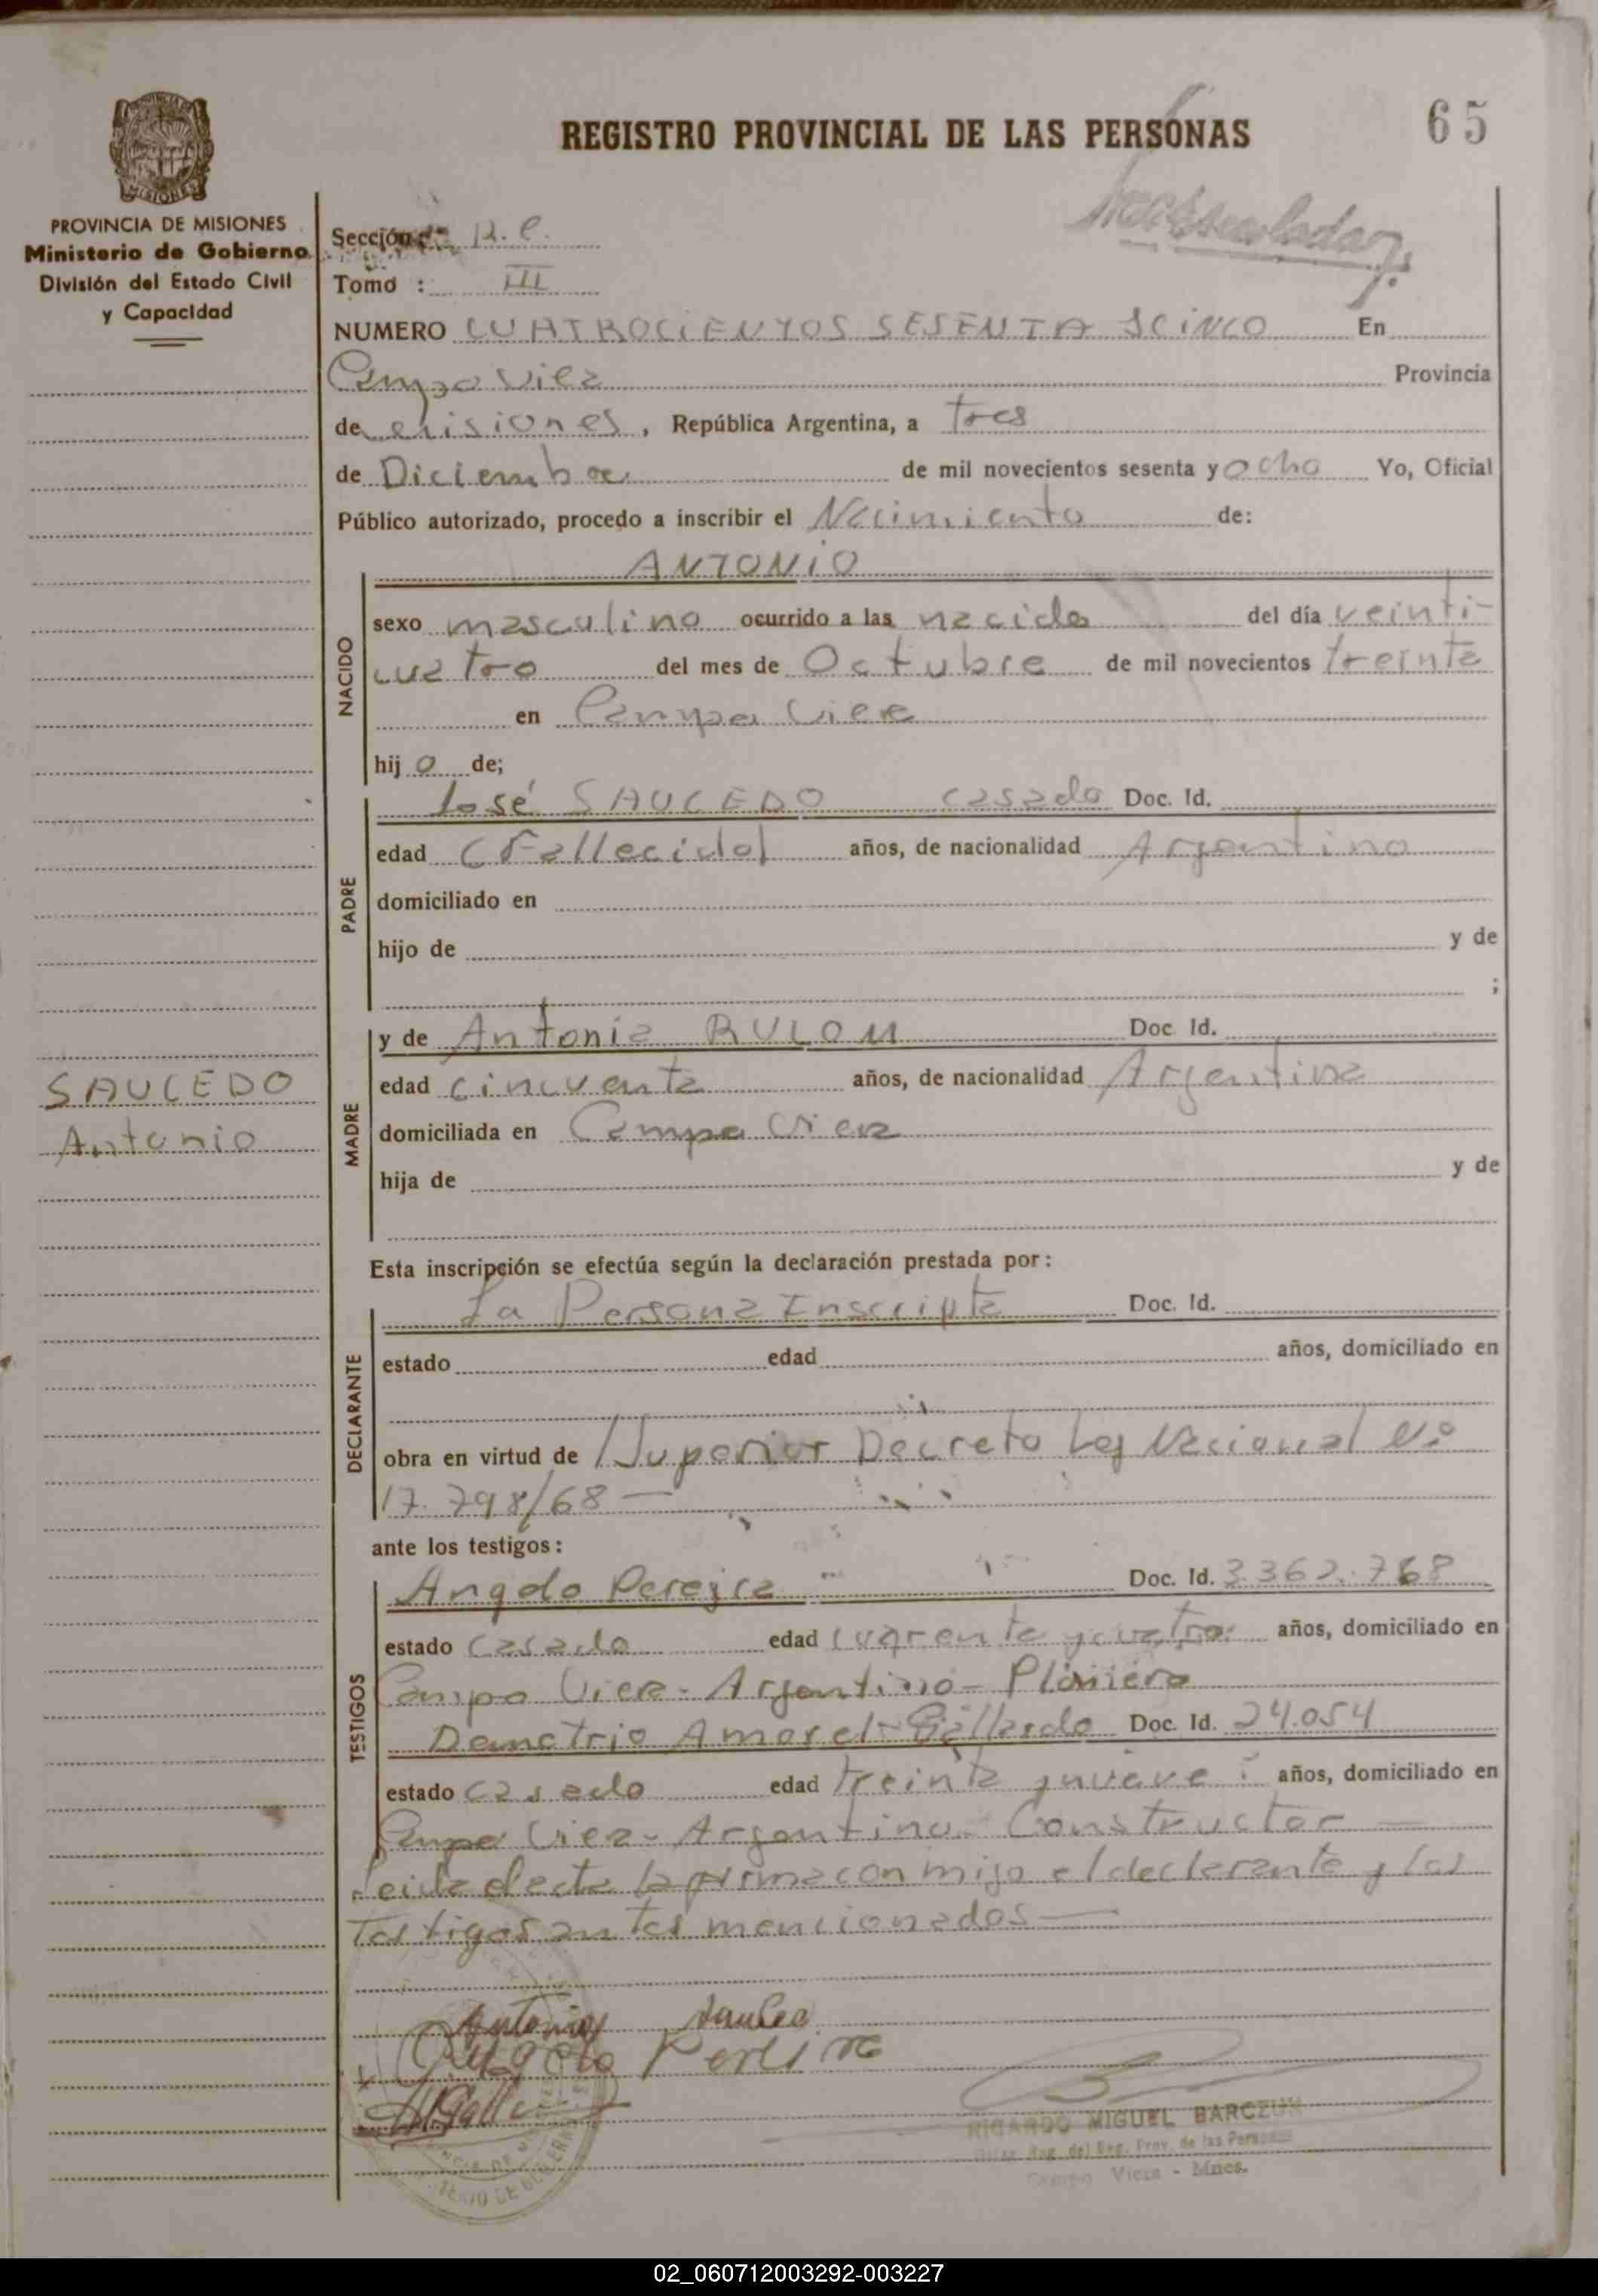 65
REGISTRO PROVINCIAL DE LAS PERSONAS
MISIONES
PROVINCIA DE MISIONES
Ministerio de Gobierno
División del Estado Civil
y Capacidad
Sección
Tomo : III
NUMERO CUATROCIENTOS SESENTA SCINCO En
Campo Viera Provincia
de Misiones, República Argentina, a Tres
de Diciembre de mil novecientos sesenta y ocho Yo, Oficial
Público autorizado, procedo a inscribir el Nacimiento de:
ANTONIO
NACIDO
sexo masculino ocurrido a las nacido del día veinti-
cuatro del mes de Octubre de mil novecientos treinta
en Campo Viera
hij o de;
PADRE
José SAUCEDO casado Doc. Id.
edad (Fallecido) años, de nacionalidad Argentino
domiciliado en
hijo de y de
;
MADRE
y de Antonia Doc Id.
edad cincuenta años, de nacionalidad Argentina
domiciliada en Campo Viera
hija de y de
SAUCEDO
Antonio
Esta inscripción se efectúa según la declaración prestada por:
DECLARANTE
La Persona Inscripta Doc. Id.
estado edad años, domiciliado en
obra en virtud de Superior Decreto Ley Nacional Nº
17.798/68 —
ante los testigos:
TESTIGOS
Angelo Pereira Doc. Id. 3362.768
estado Casado edad cuarenta y cuatro años, domiciliado en
Campo Viera - Argentino - Plomero
Demetrio Amarel Gallardo Doc. Id. 24.054
estado Casado edad treinta y nueve años, domiciliado en
Campo Viera - Argentino - Constructor —
Leida el acta la firma con migo el declarante y los
Testigos antes mencionados —
Antonio
Angelo Pereira
RICARDO MIGUEL BARCZUK
del Reg. Prov. de las Personas
Campo Viera - Mnes.
02_060712003292-003227